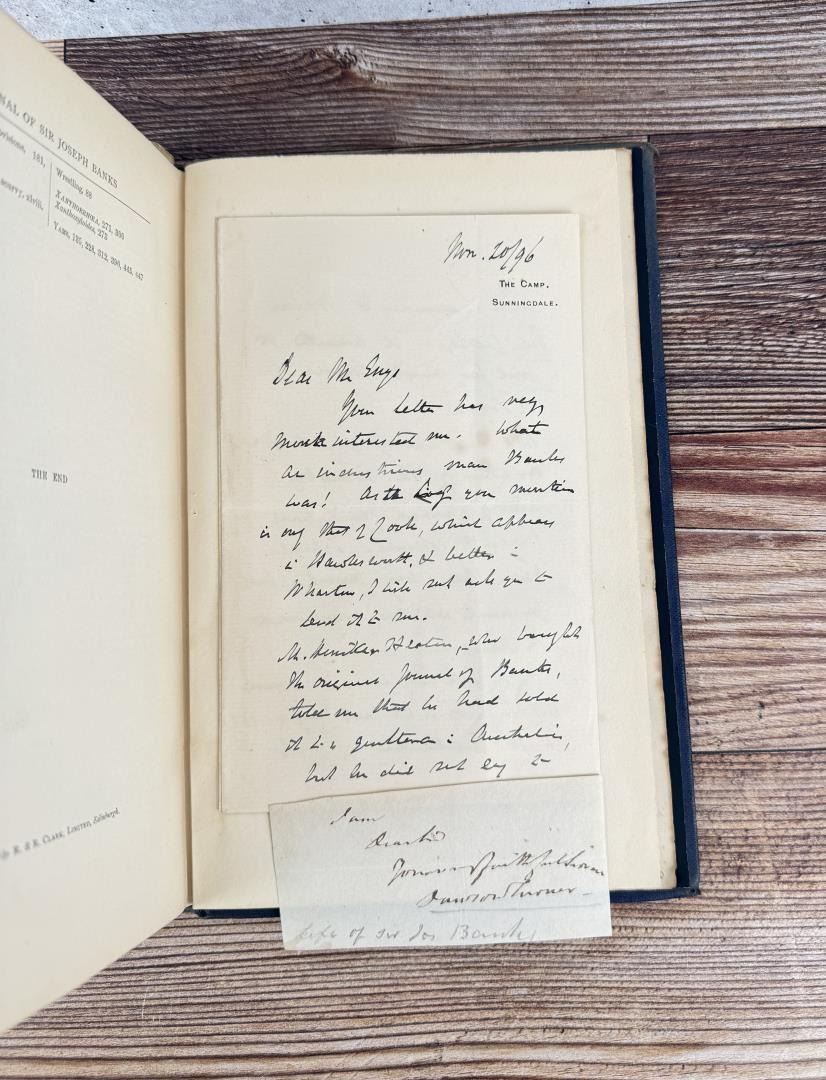 JOURNAL OF SIR JOSEPH BANKS
181,
scurvy, xlviii.
Wrestling, 88
XANTHORRHŒA, 271, 300
Xanthoxyloides, 273
YAMS, 135, 228, 312, 390, 445, 447
THE END
R. & R. CLARK, LIMITED, Edinburgh.
Nov. 20/96
THE CAMP,
SUNNINGDALE.
Dear Mr Enys
Your letter has very
much interested me. What
an industrious man Banks
was! As the Log you mention
is only that of Cook, which appears
in Hawkesworth, & better in
Wharton, I will not ask you to
send it to me.
Mr. Henniker Heaton, who bought
the original journal of Banks,
told me that he had sold
it to a gentleman in Australia,
but he did not say to
I am
Dear Sir
Dawson Turner
Life of Sir Jos Banks